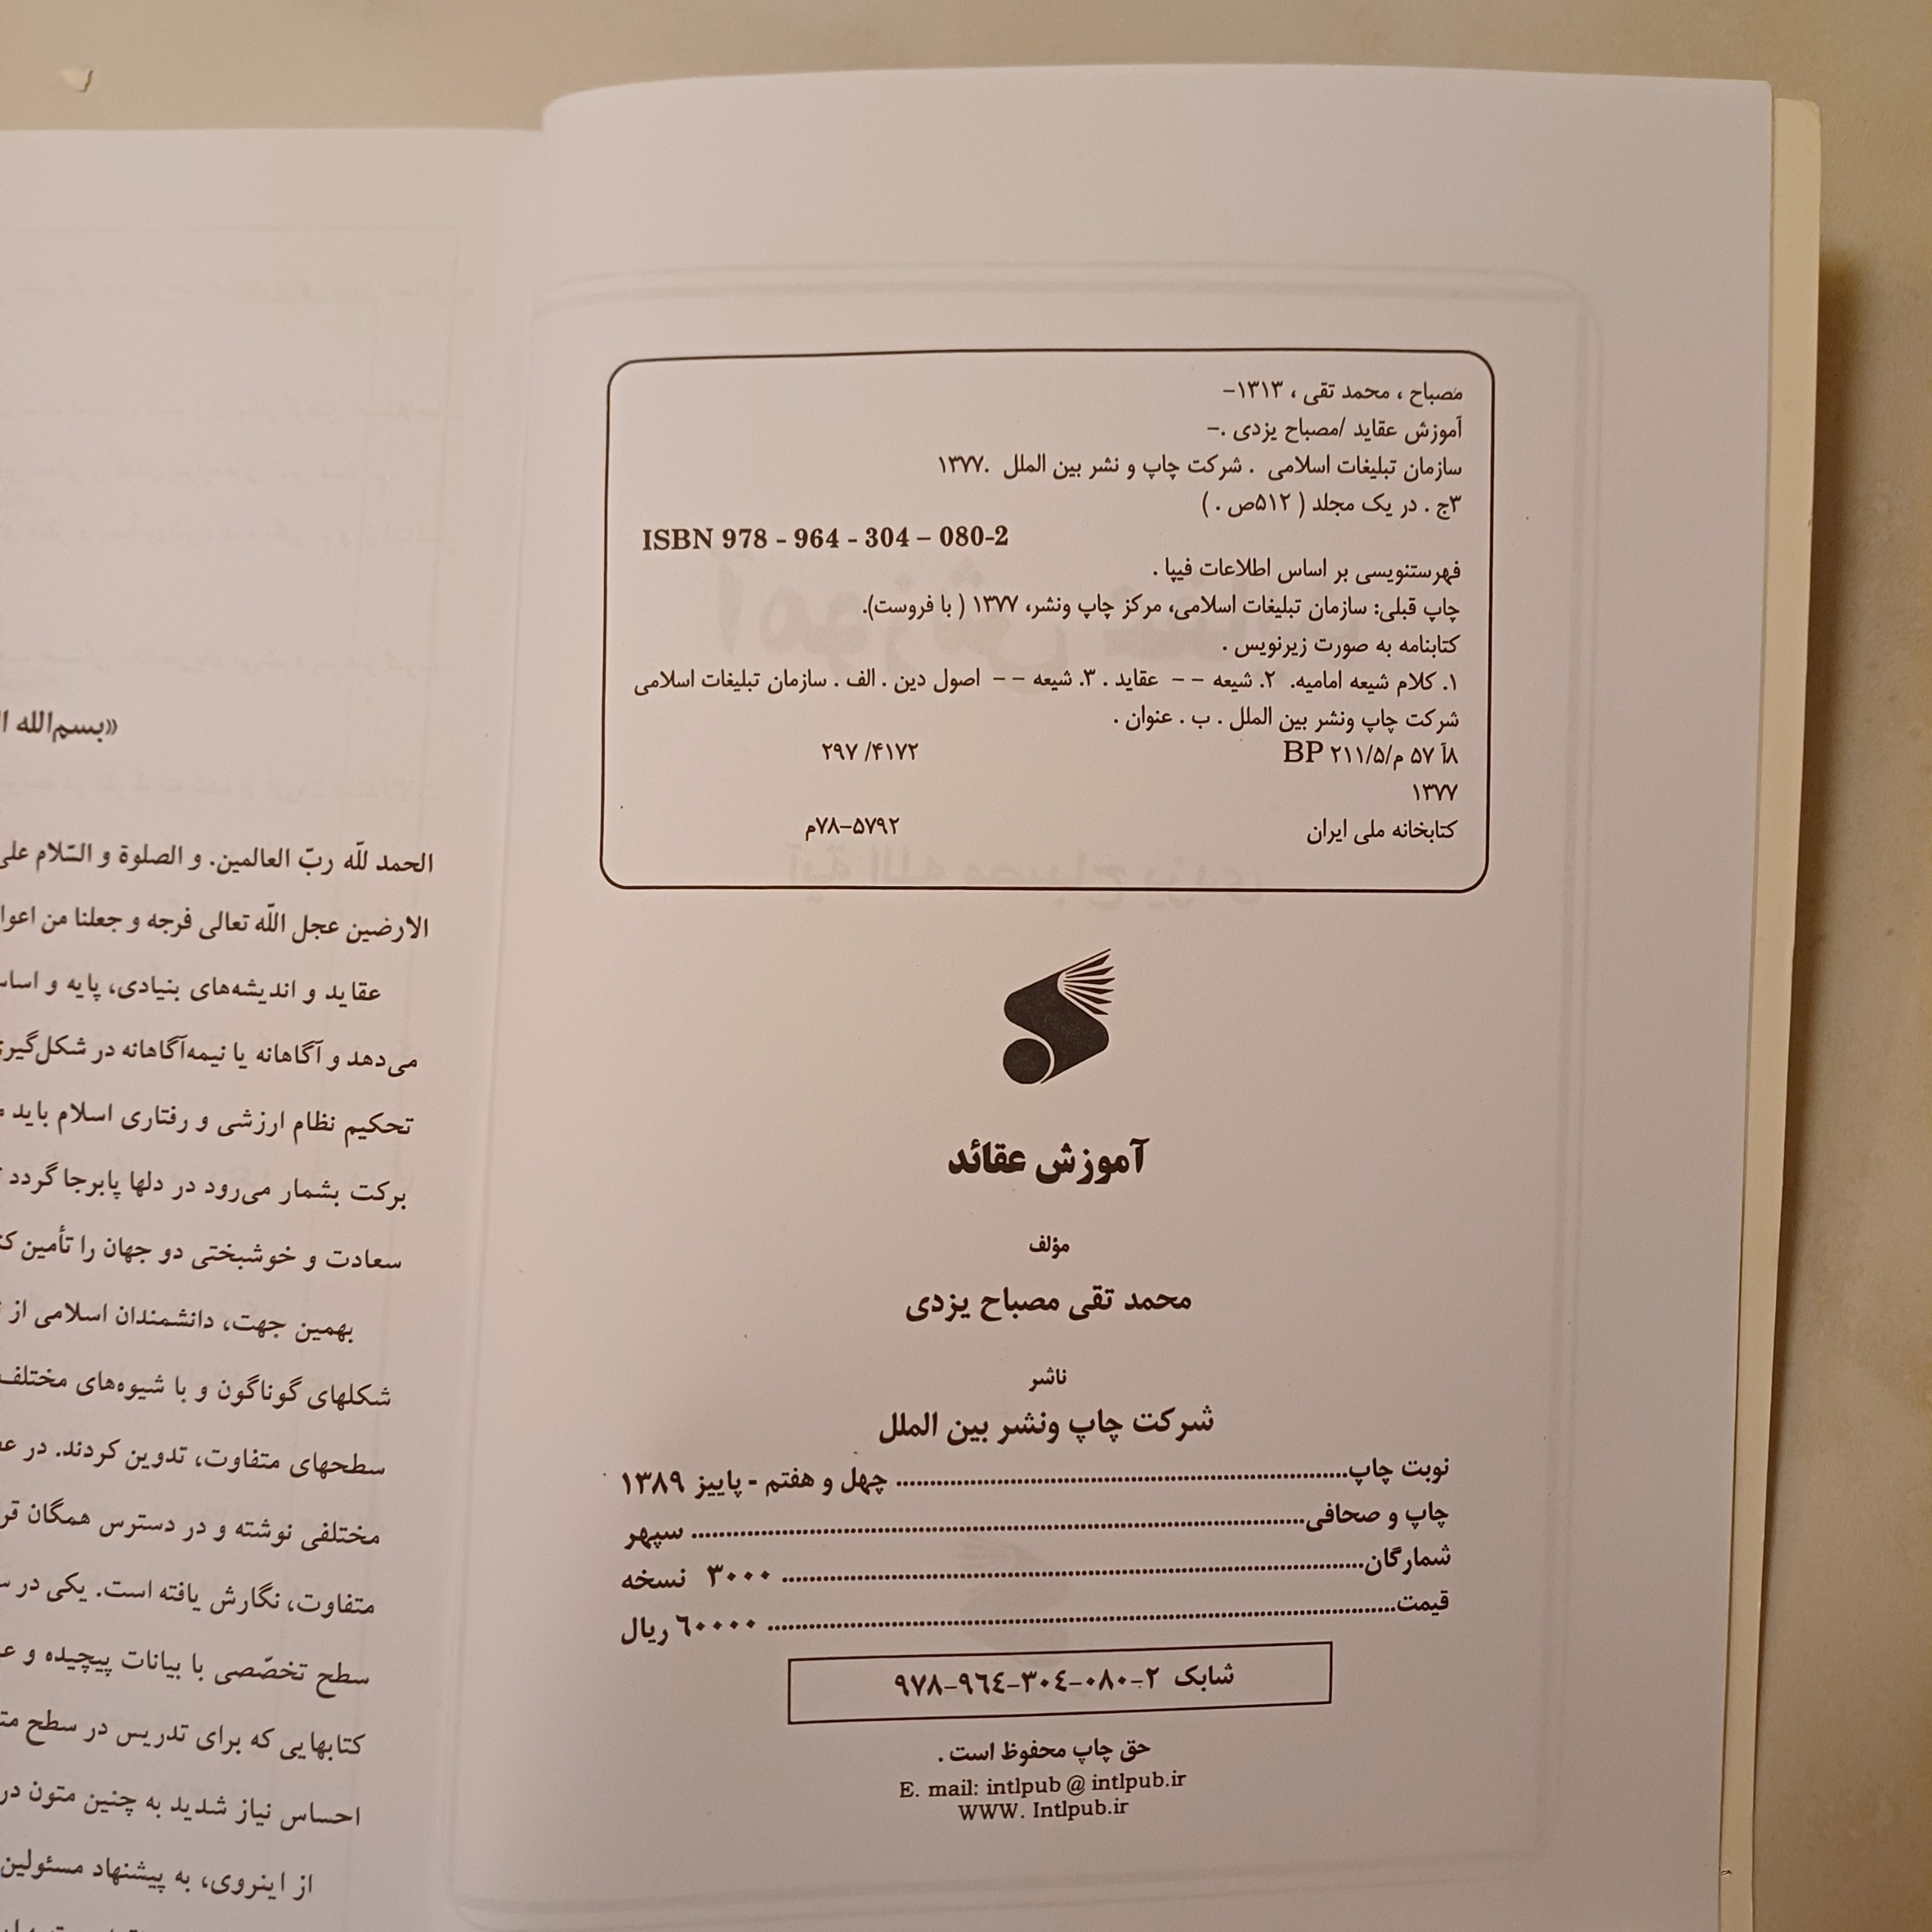 مصباح ، محمد تقی ، ۱۳۱۳–
آموزش عقاید /مصباح یزدی .–
سازمان تبلیغات اسلامی . شرکت چاپ و نشر بین الملل .۱۳۷۷
۳ج . در یک مجلد ( ۵۱۲ص . )
ISBN 978 - 964 - 304 – 080-2
فهرستنویسی بر اساس اطلاعات فیپا .
چاپ قبلی: سازمان تبلیغات اسلامی، مرکز چاپ ونشر، ۱۳۷۷ ( با فروست).
کتابنامه به صورت زیرنویس .
۱. کلام شیعه امامیه. ۲. شیعه – – عقاید . ۳. شیعه – – اصول دین . الف . سازمان تبلیغات اسلامی
شرکت چاپ ونشر بین الملل . ب . عنوان .
۸آ ۵۷ م/۲۱۱/۵ BP ۲۹۷ /۴۱۷۲
۱۳۷۷
کتابخانه ملی ایران ۷۸–۵۷۹۲م
آموزش عقائد
مؤلف
محمد تقی مصباح یزدی
ناشر
شرکت چاپ ونشر بین الملل
نوبت چاپ................ چهل و هفتم - پاییز ۱۳۸۹
چاپ و صحافی................ سپهر
شمارگان................ ۳۰۰۰ نسخه
قیمت................ ٦۰۰۰۰ ریال
شابک ۲–۰۸۰–۳۰٤–۹٦٤–۹۷۸
حق چاپ محفوظ است .
E. mail: intlpub @ intlpub.ir
WWW. Intlpub.ir
«بسم‌الله
الحمد للّه ربّ العالمین. و الصلوة و السّلام علی
الارضین عجل اللّه تعالی فرجه و جعلنا من
عقاید و اندیشه‌های بنیادی، پایه و
می‌دهد و آگاهانه یا نیمه‌آگاهانه در
تحکیم نظام ارزشی و رفتاری اسلام باید
برکت بشمار می‌رود در دلها پابرجا گردد
سعادت و خوشبختی دو جهان را تأمین
بهمین جهت، دانشمندان اسلامی از
شکلهای گوناگون و با شیوه‌های مختلف
سطحهای متفاوت، تدوین کردند. در
مختلفی نوشته و در دسترس همگان
متفاوت، نگارش یافته است. یکی در
سطح تخصّصی با بیانات پیچیده و
کتابهایی که برای تدریس در سطح
احساس نیاز شدید به چنین متون در
از اینروی، به پیشنهاد مسئولین